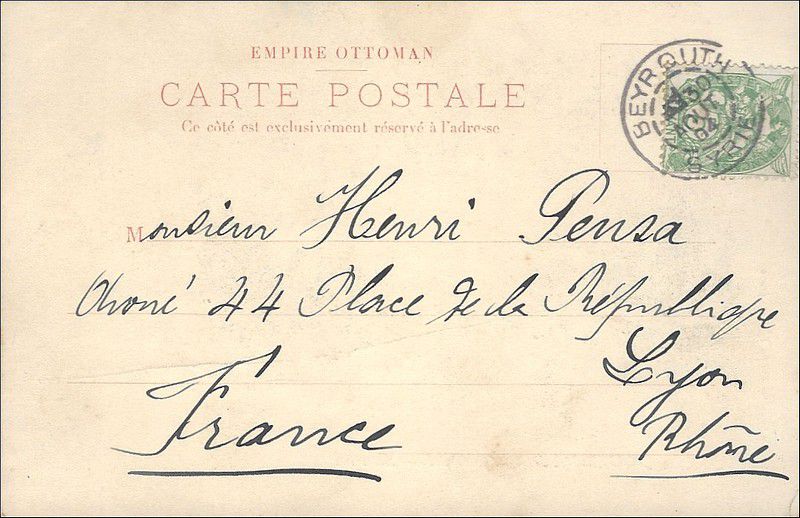 EMPIRE OTTOMAN
CARTE POSTALE
Ce côté est exclusivement réservé à l'adresse
BEYROUTH
SYRIE
Monsieur Henri Pensa
44 Place de la République
Lyon
Rhône
France